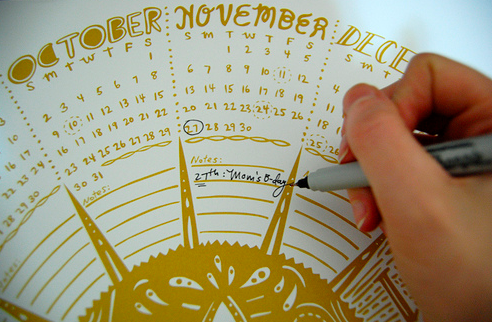 OCTOBER
S M T W T F S
1
2 3 4 5 6 7 8
9 10 11 12 13 14 15
16 17 18 19 20 21 22
23 24 25 26 27 28 29
30 31
Notes:
NOVEMBER
S M T W T F S
1 2 3 4 5
6 7 8 9 10 11 12
13 14 15 16 17 18 19
20 21 22 23 24 25 26
27 28 29 30
Notes:
27th: Mom's B-day
DECE
S M T
4
11
18
25
Notes: